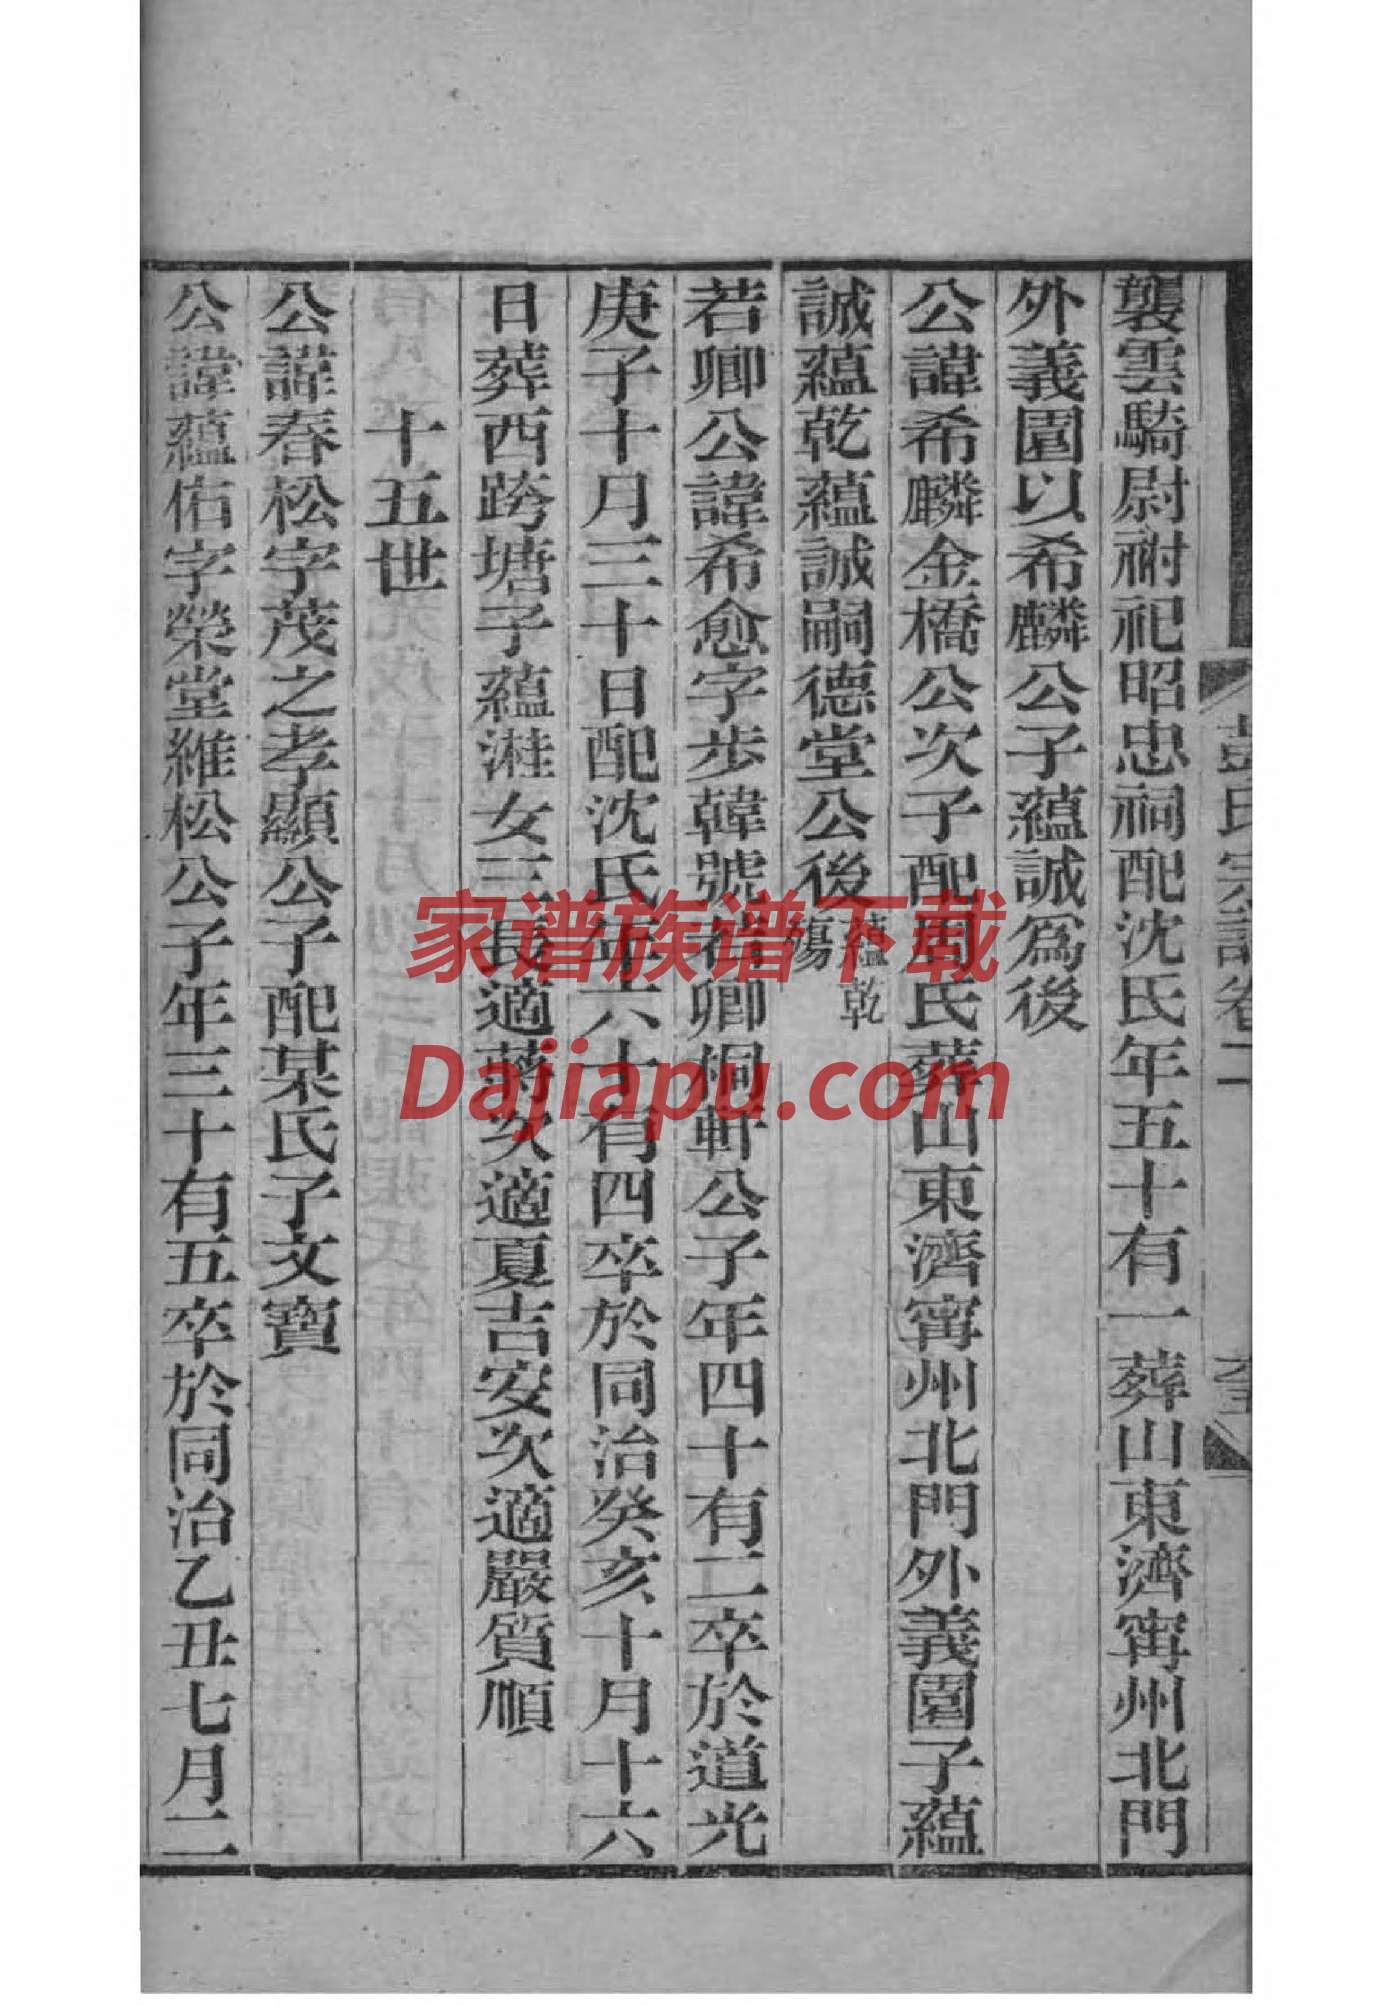 襲雲騎尉祔祀昭忠祠配沈氏年五十有一葬山東濟甯州北門
外義園以希麟公子蘊誠爲後
公諱希麟金橋公次子配周氏葬山東濟甯州北門外義園子蘊
誠蘊乾蘊誠嗣德堂公後蘊乾殤
若卿公諱希愈字步韓號若卿桐軒公子年四十有二卒於道光
庚子十月三十日配沈氏年六十有四卒於同治癸亥十月十六
日葬西跨塘子蘊溎女三長適蔣次適夏吉安次適嚴質順
十五世
公諱春松字茂之孝顯公子配某氏子文寶
公諱蘊佑字榮堂維松公子年三十有五卒於同治乙丑七月二
彭氏宗譜卷二
家谱族谱下载
Dajiapu.com